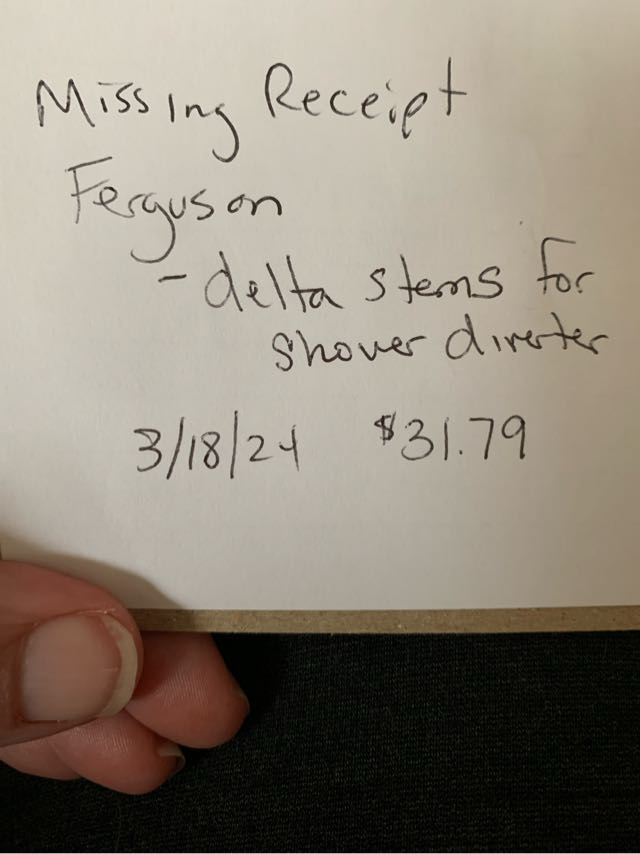 Missing Receipt
Ferguson
- delta stems for
shower diverter
3/18/24 $31.79